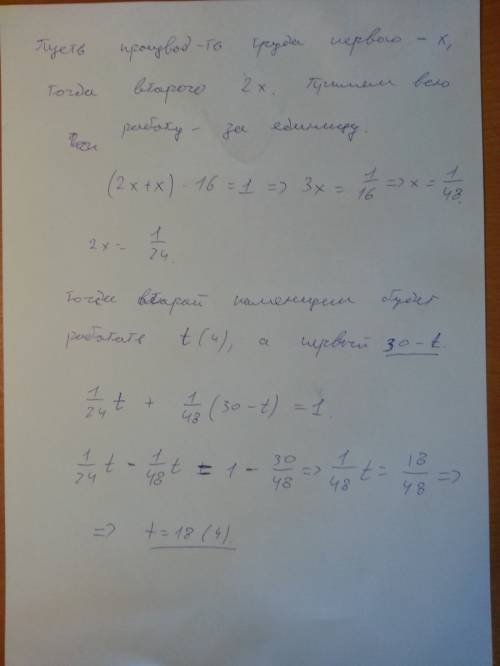 Пусть производ-ть труда первого - x,
тогда второго 2x. Примем всю
работу - за единицу.
(2x+x) · 16 = 1 => 3x = 1/16 => x = 1/48.
2x = 1/24.
тогда второй каменщик будет
работать t (ч), а первый 30-t.
1/24 t + 1/48 (30-t) = 1.
1/24 t - 1/48 t = 1 - 30/48 => 1/48 t = 18/48 =>
=> t = 18 (ч).